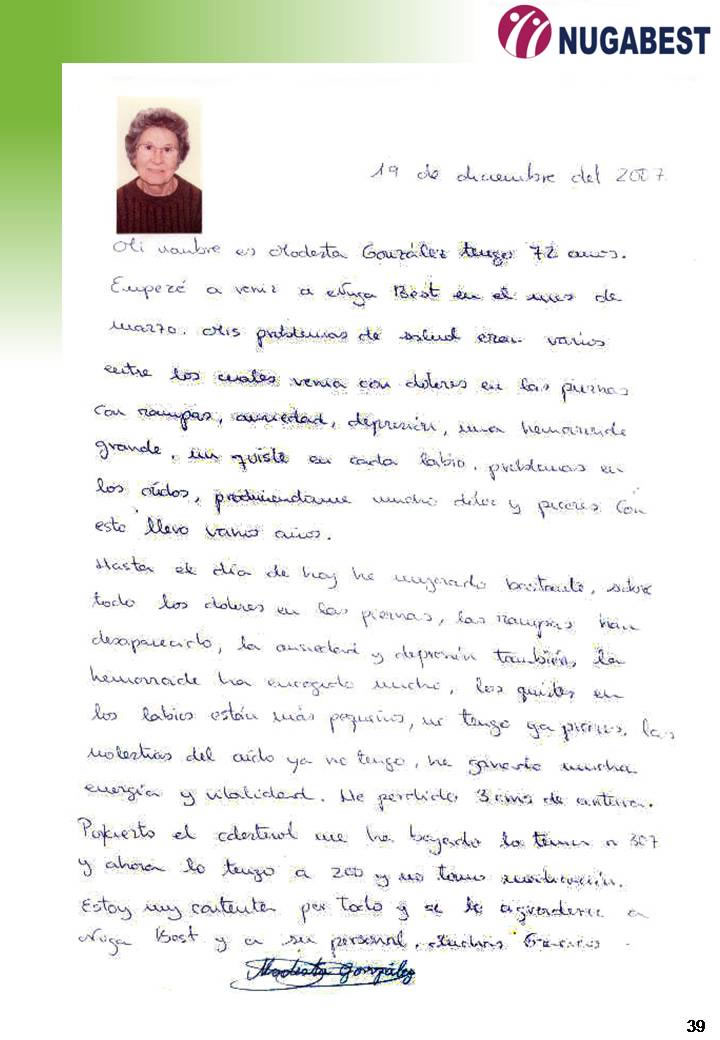 NUGABEST
19 de diciembre del 2007
Mi nombre es Modesta González tengo 72 anos.
Empezé a venir a Nuga Best en el mes de
marzo. Mis problemas de salud eran varios
entre los cuales venia con dolores en las piernas
con rampas, ansiedad, depresión, una hemorroide
grande, un quiste en cada labio, problemas en
los oídos, produciendame mucho dolor y picores. Con
esto llevo varios años.
Hasta el día de hoy he mejorado bastante, sobre
todo los dolores en las piernas, las rampas han
desaparecido, la ansiedad y depresión también, la
hemorroide ha encogido mucho, los quistes en
los labios están más pequeños, no tengo ya picores, las
molestias del oído ya no tengo, he ganado mucha
energía y vitalidad. He perdido 3 cms de cintura.
Por cierto el colesterol me ha bajado lo tenia a 307
y ahora lo tengo a 200 y no tomo medicación.
Estoy muy contenta por todo y se lo agradezco a
Nuga Best y a su personal. Muchas Gracias
Modesta González
39